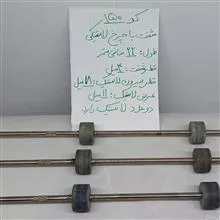 کد ۱۵۰
شفت با چرخ لاستیکی
طول: ۲۲ سانتی متر
قطر شفت: ۴ میل
قطر بیرون لاستیک: ۱۸ میل
عرض لاستیک: ۱۱ میل
دو عدد لاستیک دارد